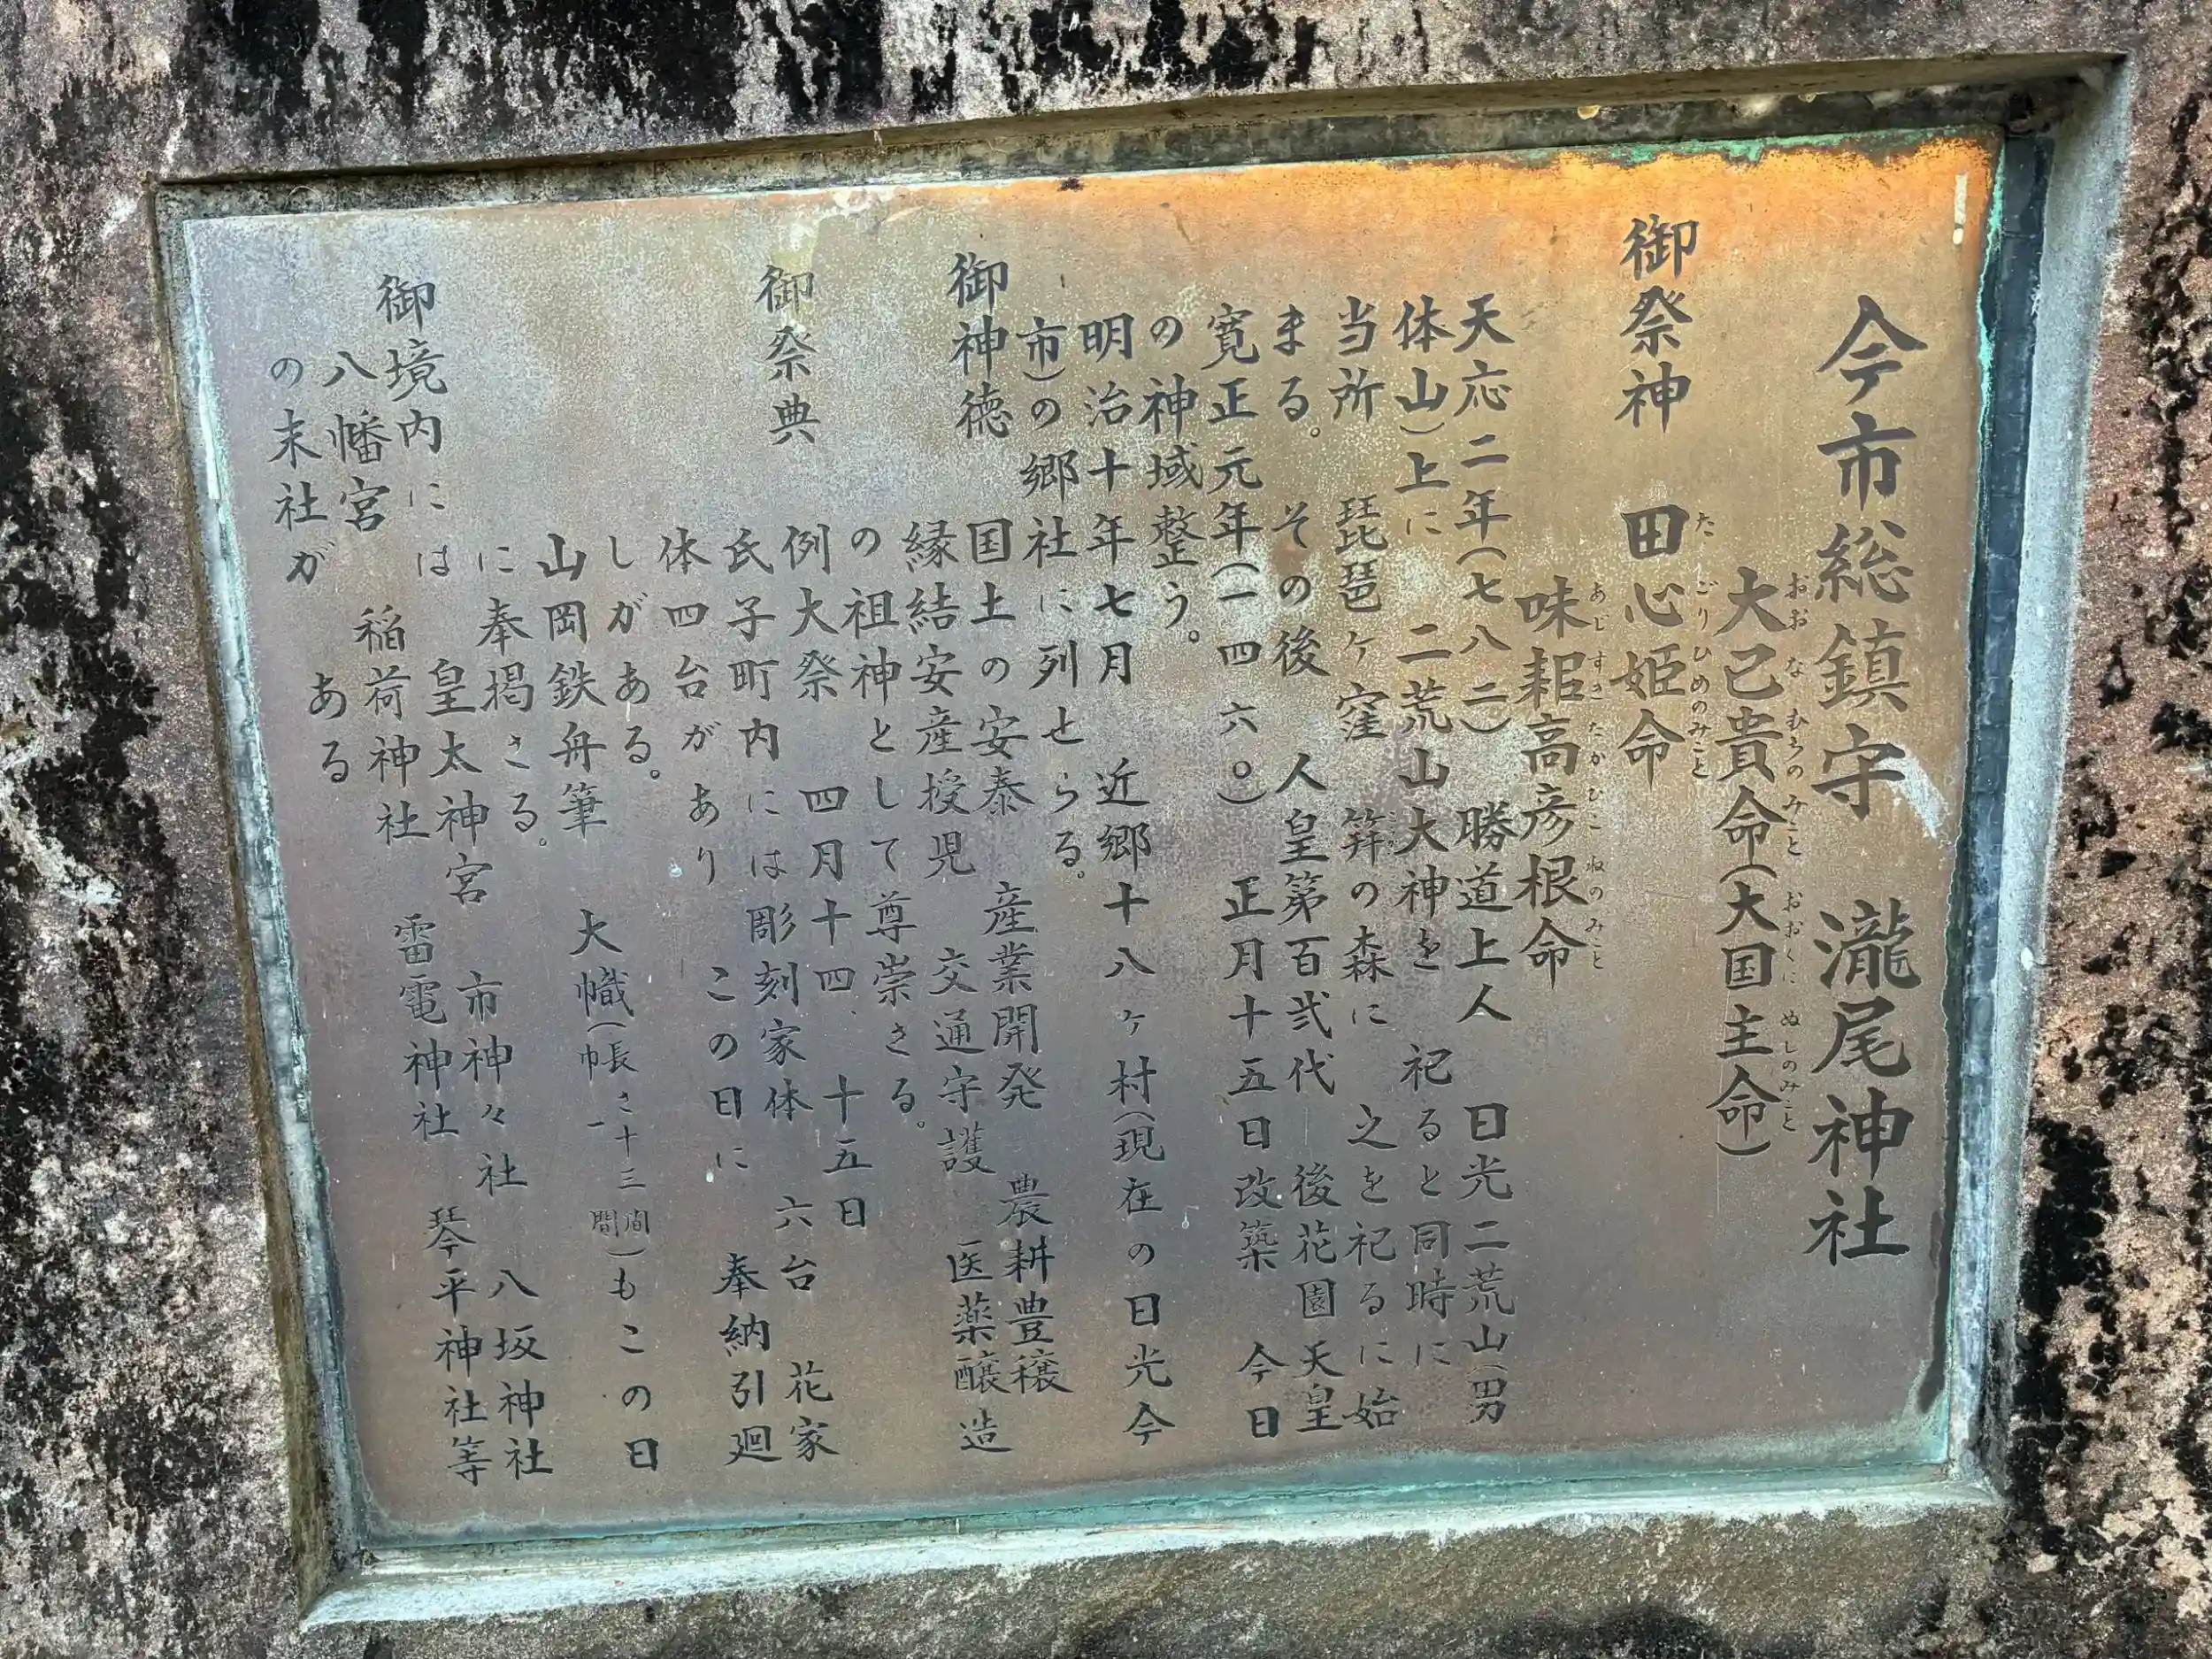 今市総鎮守　瀧尾神社
おおなむちのみこと　おおくにぬしのみこと
大己貴命(大国主命)
たごりひめのみこと
御祭神　田心姫命
あじすきたかひこねのみこと
味耜高彦根命
天応二年(七八二)　勝道上人　日光二荒山(男
体山)上に　二荒山大神を　祀ると同時に
当所　琵琶ヶ窪　笄の森に　之を祀るに始
まる。　その後　人皇第百弐代　後花園天皇
寛正元年(一四六〇)　正月十五日改築　今日
の神域整う。
明治十年七月　近郷十八ヶ村(現在の日光今
市)の郷社に列せらる。
御神徳　国土の安泰　産業開発　農耕豊穣
縁結安産授児　交通守護　医薬醸造
の祖神として尊崇さる。
御祭典　例大祭　四月十四、十五日
氏子町内には彫刻家体　六台　花家
体四台があり　この日に　奉納引廻
しがある。
山岡鉄舟筆　大幟(長さ十三間 巾一間)もこの日
に奉掲さる。
御境内には　皇太神宮　市神々社　八坂神社
八幡宮　稲荷神社　雷電神社　琴平神社等
の末社が　ある